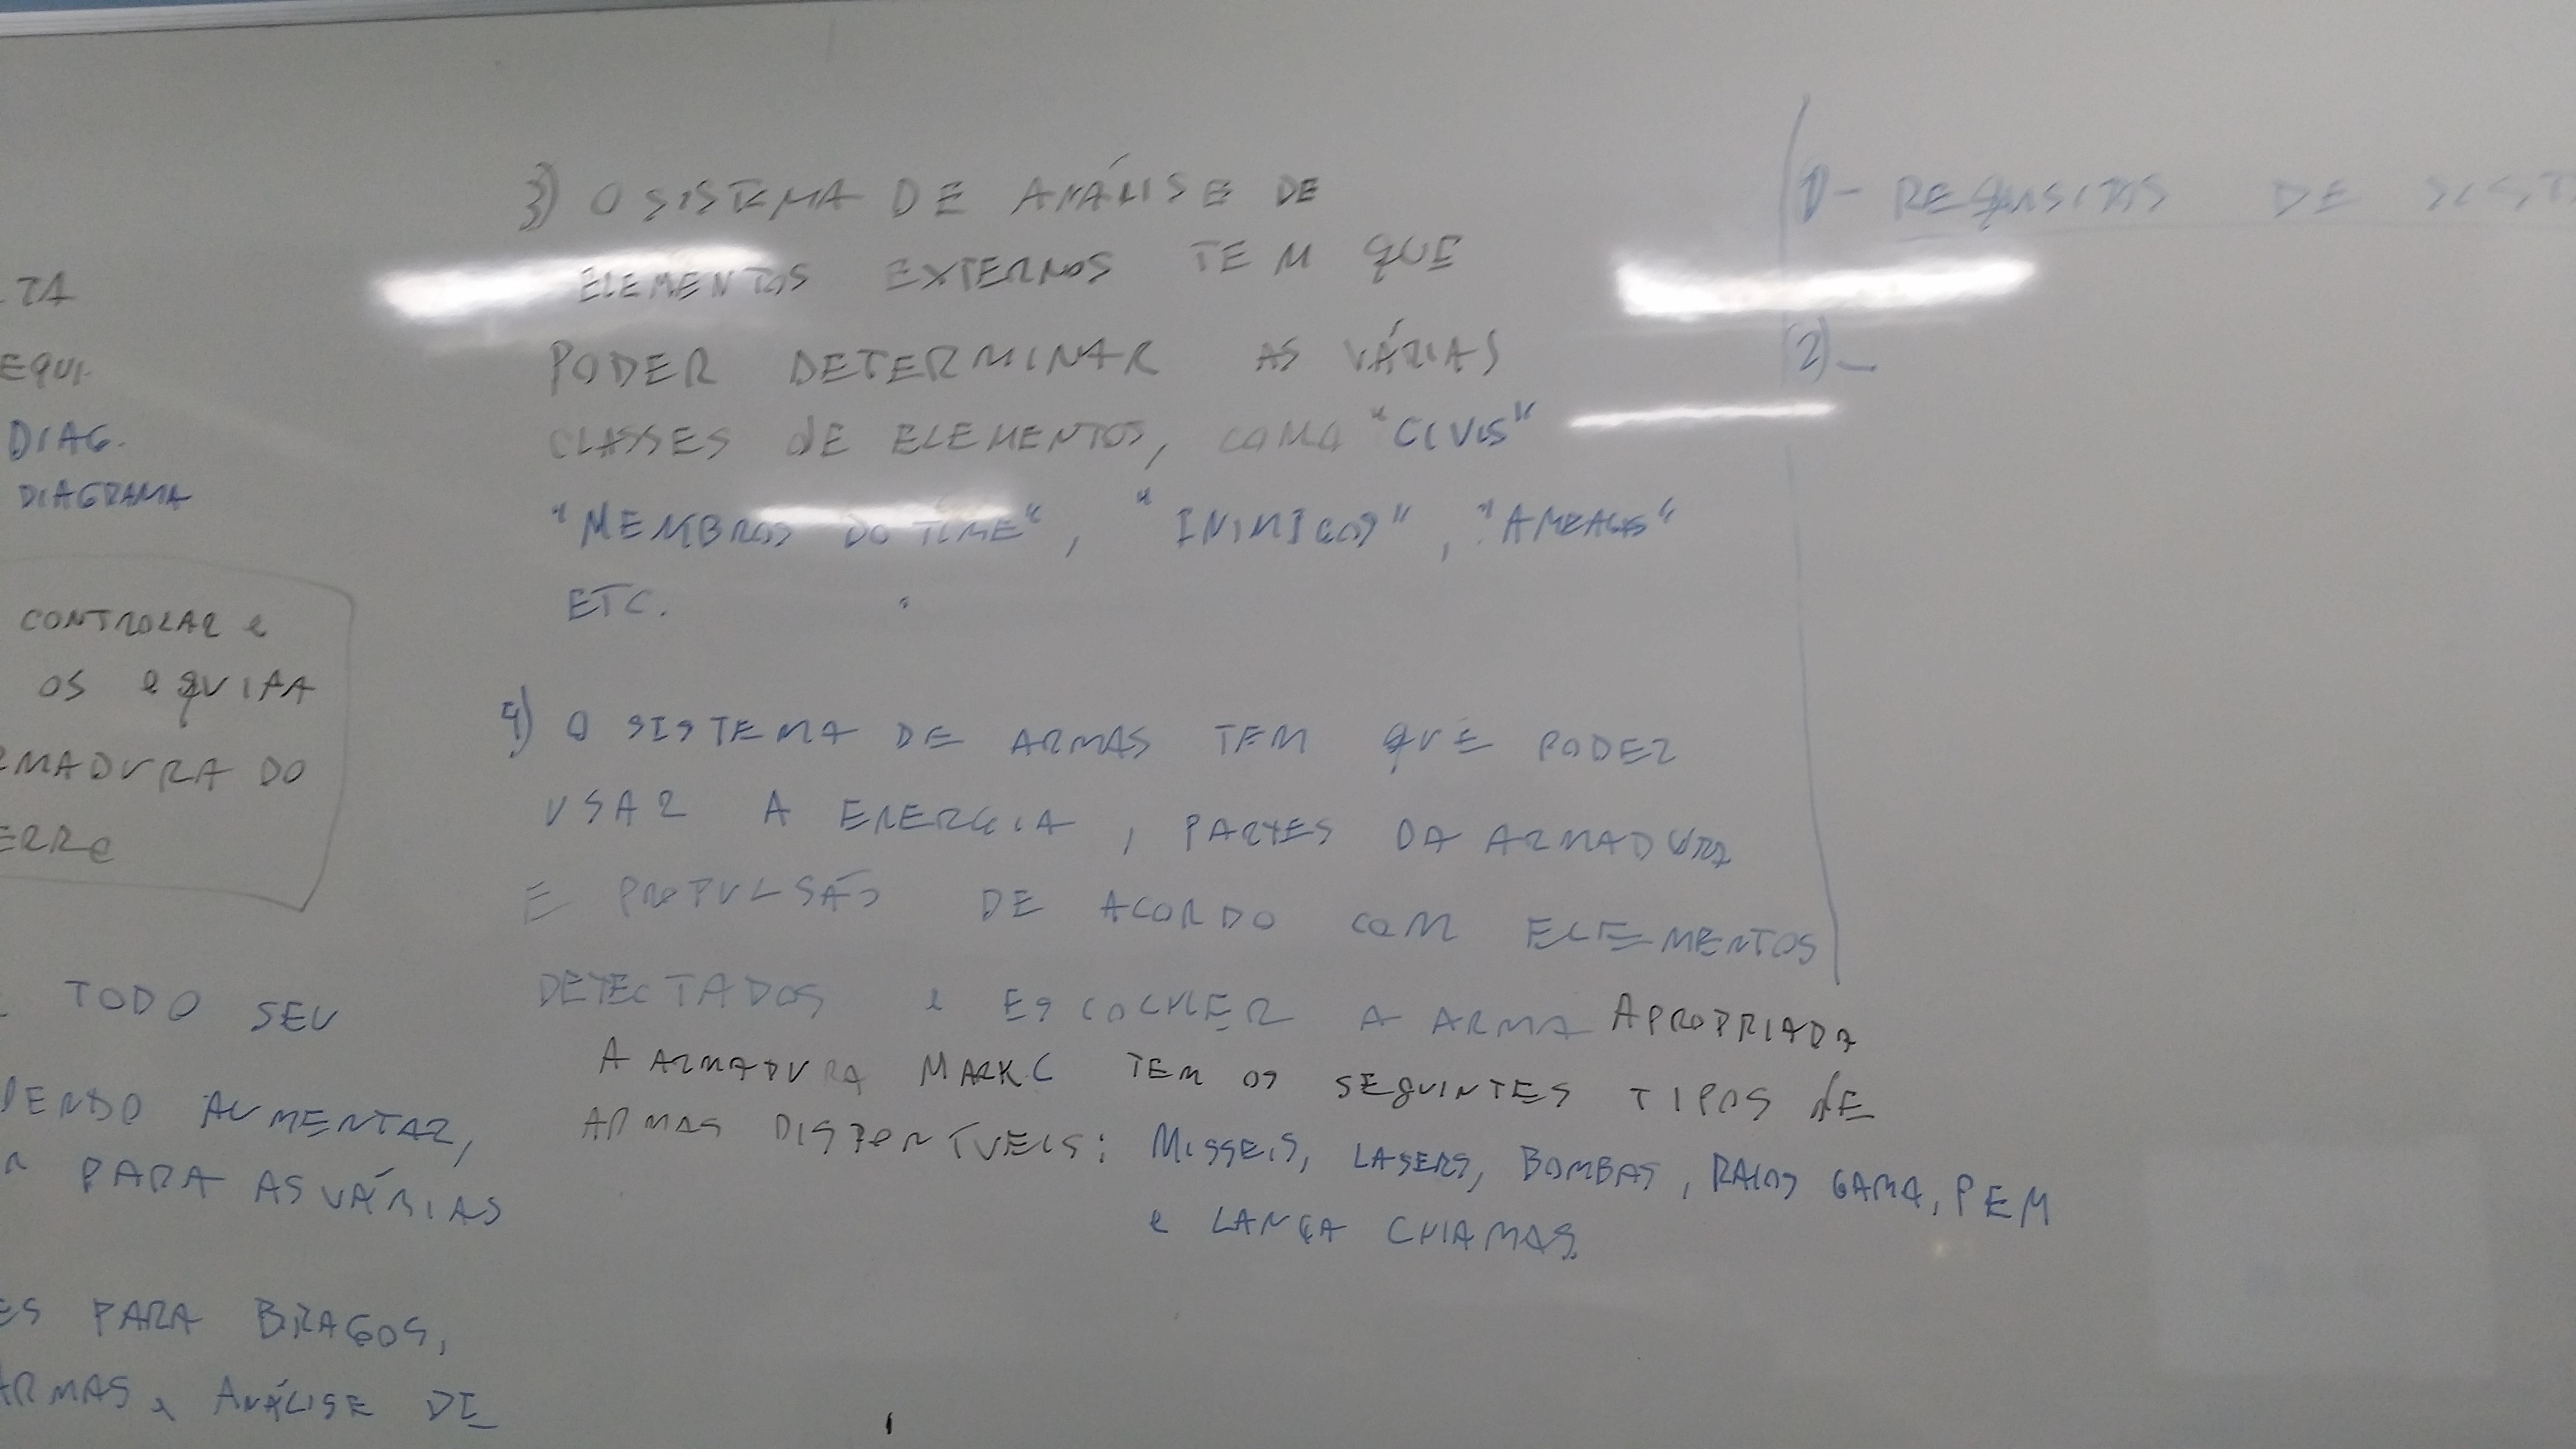 TA
EQUI.
DIAG.
DIAGRAMA
CONTROLAR e
OS eQUIPA
RMADURA DO
ERRe
TODO SEU
DENDO AUMENTAR,
PARA AS VÁRIAS
ES PARA BRAÇOS,
ARMAS e ANÁLISE DE
3) O SISTEMA DE ANÁLISE DE
ELEMENTOS EXTERNOS TEM QUE
PODER DETERMINAR AS VÁRIAS
CLASSES dE ELEMENTOS, COMO "CIVIS"
"MEMBROS DO TIME", "INIMIGOS", "AMEAÇAS"
ETC.
4) O SISTEMA DE ARMAS TEM QUE PODER
USAR A ENERGIA, PARTES DA ARMADURA
E PROPULSÃO DE ACORDO COM ELEMENTOS
DETECTADOS e ESCOLHER A ARMA APROPRIADA
A ARMADURA MARK C TEM OS SEGUINTES TIPOS dE
ARMAS DISPONÍVEIS: MISSEIS, LASERS, BOMBAS, RAIOS GAMA, PEM
e LANÇA CHAMAS.
1) - REQUISITOS DE SIST
2) -